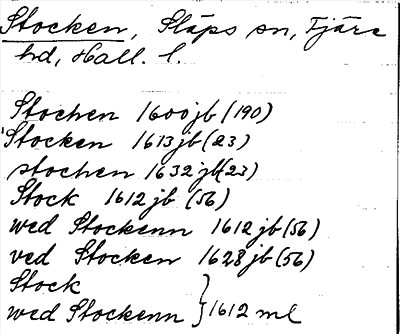 Stocken, Släps sn, Fjäre
hd, Hall. l.
Stochen 1600 jb (190)
Stocken 1613 jb (23)
stochen 1632 jb (23)
Stock 1612 jb (56)
wed Stockenn 1612 jb (56)
ved Stocken 1628 jb (56)
Stock
wed Stockenn } 1612 ml